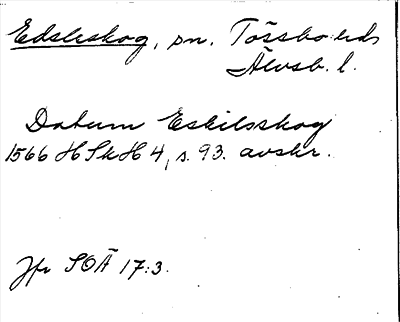 Edsleskog, sn. Tössbo hd
Älvsb. l.
Datum Eskilsskog
1566 HSkH 4, s. 93. avskr.
Jfr SOÄ 17:3.